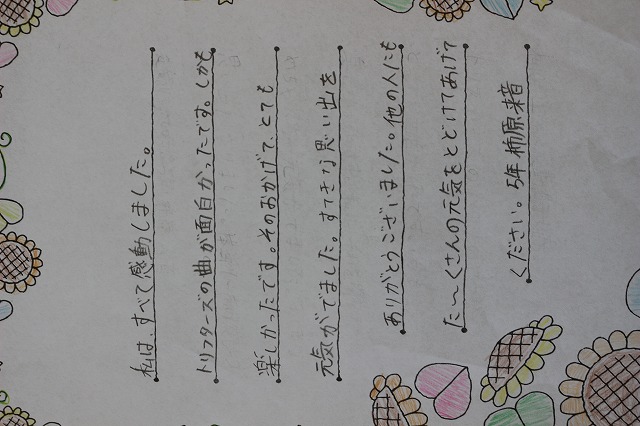 私は、すべて感動しました。
トリフターズの曲が面白かったです。しかも
楽しかったです。そのおかげで、とても
元気がでました。すてきな思い出を
ありがとうございました。他の人にも
た〜くさんの元気をとどけてあげて
ください。5年 柿原来音